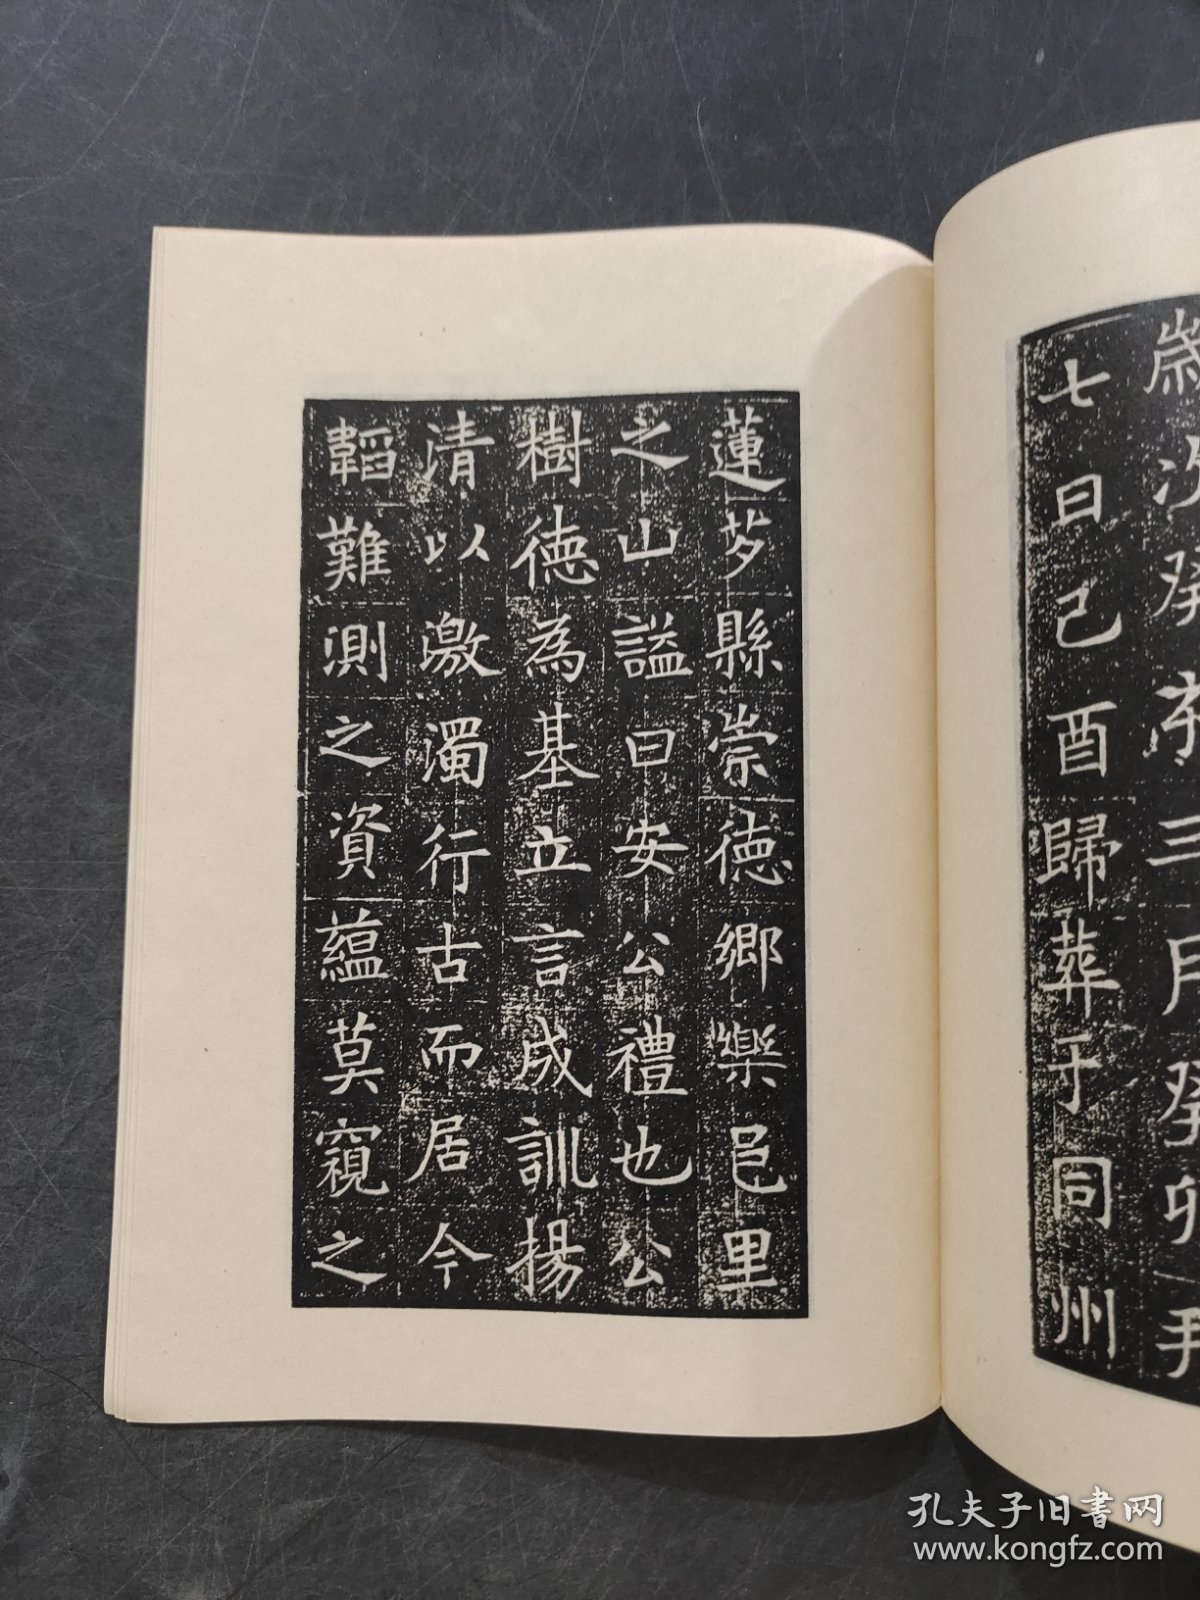 歲次癸亥三月癸卯朔
七日己酉歸葬于同州
蓮芍縣崇德鄉樂邑里
之山謚曰安公禮也公
樹德為基立言成訓揚
清以激濁行古而居今
韜難測之資蘊莫窺之
孔夫子旧書网
www.kongfz.com